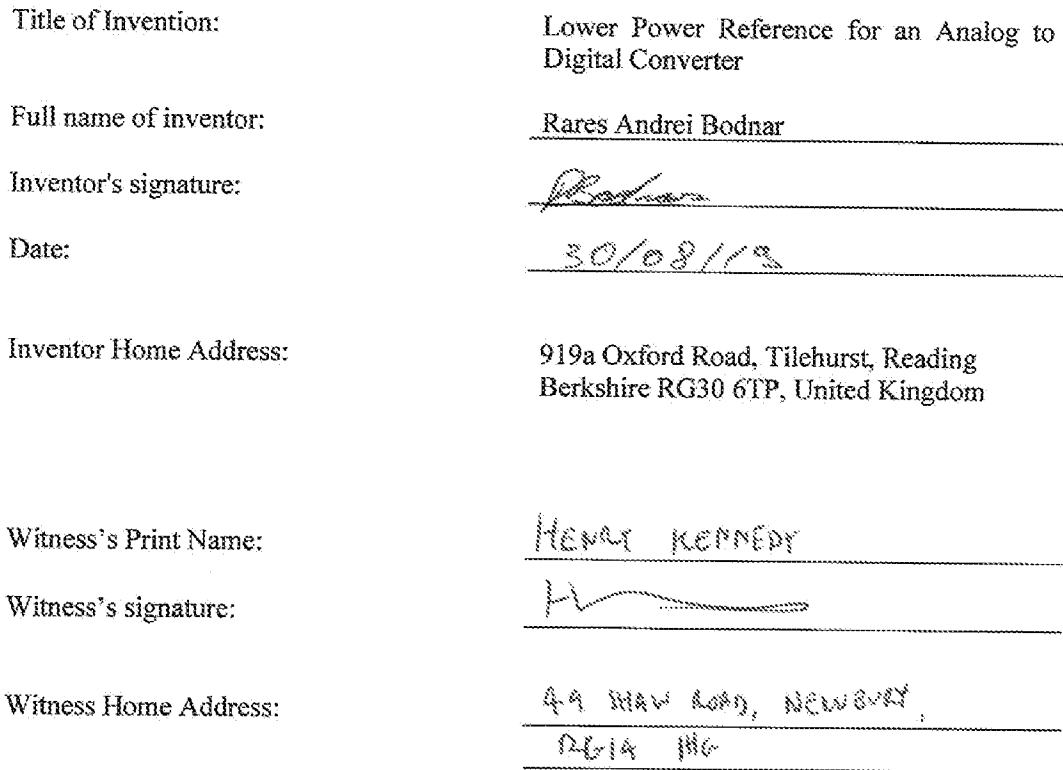 Title of Invention: Lower Power Reference for an Analog to
Digital Converter
Full name of inventor: Rares Andrei Bodnar
Inventor's signature:
Date: 30/08/19
Inventor Home Address: 919a Oxford Road, Tilehurst, Reading
Berkshire RG30 6TP, United Kingdom
Witness's Print Name: HENRY KENNEDY
Witness's signature:
Witness Home Address: 49 SHAW ROAD, NEWBURY,
RG14 1HG